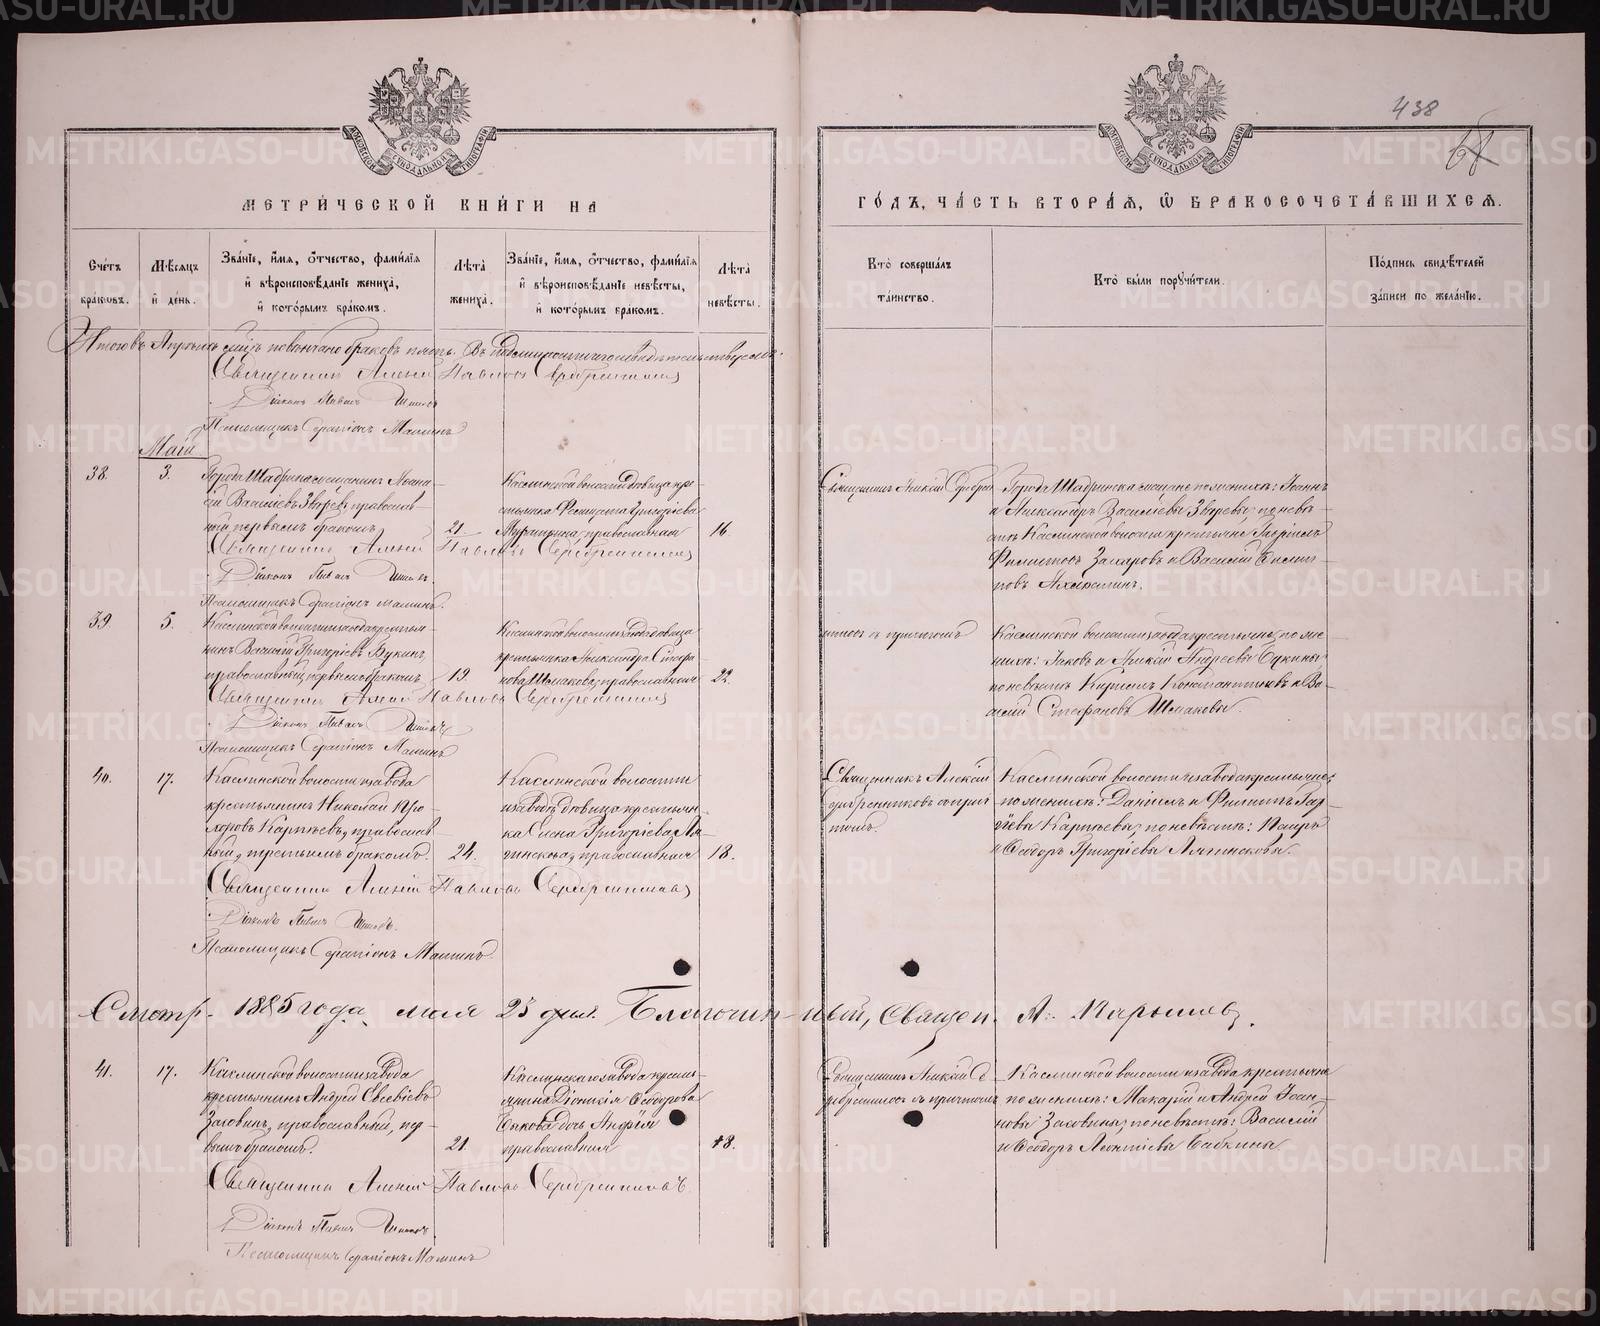 METRIKI.GASO-URAL.RU
438
МЕТРИ́ЧЕСКОЙ КНИ́ГИ НА
ГО́ДЪ, ЧА́СТЬ ВТОРА́Я, Ѡ БРАКОСОЧЕТА́ВШИХСЯ.
Сче́тъ бра́ковъ.
Мѣ́сяцъ и де́нь.
Зва́нїе, и́мя, о́тчество, фами́лїя
и вѣроисповѣ́данїе жениха́,
и кото́рымъ бра́комъ.
Лѣ́та жениха́.
Зва́нїе, и́мя, о́тчество, фами́лїя
и вѣроисповѣ́данїе невѣ́сты,
и кото́рымъ бра́комъ.
Лѣ́та невѣ́сты.
Кто̀ соверша́лъ та́инство.
Кто̀ бы́ли порꙋчи́тели.
По́дпись свидѣ́телей за́писи по жела́нїю.
Священникъ Алексій Павловъ Серебренниковъ
Діаконъ Павелъ
Псаломщикъ Серапіонъ Маминъ
Май
38.
3.
Города Шадринска мѣщанинъ
Василіевъ Звѣревъ, православ-
ный, первымъ бракомъ
21.
Каслинской волости дѣвица кре-
стьянка Григоріева
православная
16.
Священникъ Алексій Серебрен
Города Шадринска мѣщане по женихѣ: Іоаннъ
и Александръ Василіевы Звѣревы; по невѣ-
стѣ Каслинской волости крестьяне Гавріилъ
Филиповъ Захаровъ и Василій Филип-
повъ
Священникъ Алексій Павловъ Серебренниковъ
Діаконъ Павелъ
Псаломщикъ Серапіонъ Маминъ.
39.
5.
Каслинской волости и завода крестья-
нинъ Василій Григоріевъ Букинъ,
православный, первымъ бракомъ
19.
Каслинской волости и завода дѣвица
крестьянка Александра Стефа-
нова Шмакова, православная
22.
съ причтомъ
Каслинской волости и завода крестьяне, по же-
нихѣ: Іаковъ и Алексій Андреевы Букины;
по невѣстѣ Кирилъ Константиновъ и Ва-
силій Стефановъ Шмаковы.
Священникъ Алексій Павловъ Серебренниковъ
Діаконъ Павелъ
Псаломщикъ Серапіонъ Маминъ
40.
17.
Каслинской волости и завода
крестьянинъ Николай Про-
хоровъ Карпѣевъ, православ-
ный, третьимъ бракомъ.
24.
Каслинской волости
и завода дѣвица крестьян-
ка Елена Григоріева Ля-
гинскова, православная
18.
Священникъ Алексій
Серебренниковъ съ прич
томъ.
Каслинской волости и завода крестьяне,
по женихѣ: Даніилъ и Филиппъ
Карпѣевы; по невѣстѣ: Петръ
и Ѳеодоръ Григоріевы Лягинсковы.
Священникъ Алексій Павловъ Серебренниковъ
Діаконъ Павелъ
Псаломщикъ Серапіонъ Маминъ.
Смотр. 1885 года мая 23 дня. Благочинный, Священ. А. Карышевъ.
41.
17.
Каслинской волости и завода
крестьянинъ Андрей Евсевіевъ
Заговинъ, православный, пер-
вымъ бракомъ.
21.
Каслинскаго завода кресть-
янина Діонисія Ѳеодорова
дочь
православная
18.
Священникъ Алексій Се
ребренниковъ съ причтомъ
Каслинской волости и завода крестьяне
по женихѣ: Макарій и Андрей Іоан-
новы Заговины; по невѣстѣ: Василій
и Ѳеодоръ Леонтіевы Бабкины.
Священникъ Алексій Павловъ Серебренниковъ
Діаконъ Павелъ
Псаломщикъ Серапіонъ Маминъ